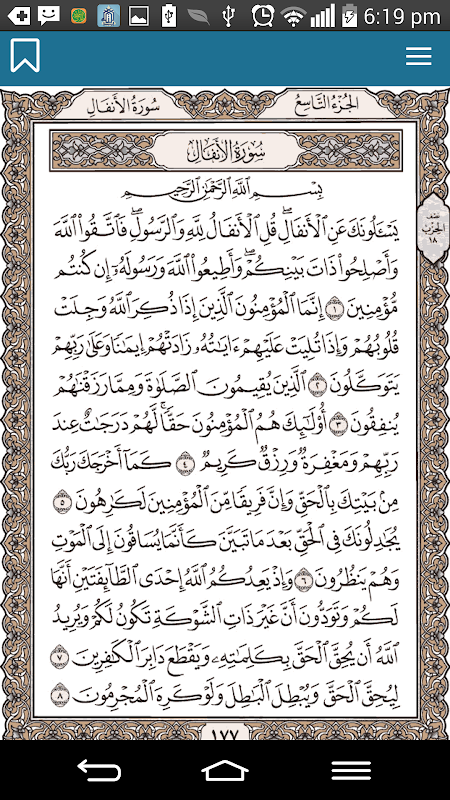 6:19 pm
سُورَةُ الأَنفَالِ
الجُزْءُ التَّاسِعُ
سُورَةُ الأَنفَالِ
بِسْمِ ٱللَّهِ ٱلرَّحْمَٰنِ ٱلرَّحِيمِ
يَسْـَٔلُونَكَ عَنِ ٱلْأَنفَالِ ۖ قُلِ ٱلْأَنفَالُ لِلَّهِ وَٱلرَّسُولِ ۖ فَٱتَّقُوا۟ ٱللَّهَ
وَأَصْلِحُوا۟ ذَاتَ بَيْنِكُمْ ۖ وَأَطِيعُوا۟ ٱللَّهَ وَرَسُولَهُۥٓ إِن كُنتُم
مُّؤْمِنِينَ ١ إِنَّمَا ٱلْمُؤْمِنُونَ ٱلَّذِينَ إِذَا ذُكِرَ ٱللَّهُ وَجِلَتْ
قُلُوبُهُمْ وَإِذَا تُلِيَتْ عَلَيْهِمْ ءَايَٰتُهُۥ زَادَتْهُمْ إِيمَٰنًا وَعَلَىٰ رَبِّهِمْ
يَتَوَكَّلُونَ ٢ ٱلَّذِينَ يُقِيمُونَ ٱلصَّلَوٰةَ وَمِمَّا رَزَقْنَٰهُمْ
يُنفِقُونَ ٣ أُو۟لَٰٓئِكَ هُمُ ٱلْمُؤْمِنُونَ حَقًّا ۚ لَّهُمْ دَرَجَٰتٌ عِندَ
رَبِّهِمْ وَمَغْفِرَةٌ وَرِزْقٌ كَرِيمٌ ٤ كَمَآ أَخْرَجَكَ رَبُّكَ
مِنۢ بَيْتِكَ بِٱلْحَقِّ وَإِنَّ فَرِيقًا مِّنَ ٱلْمُؤْمِنِينَ لَكَٰرِهُونَ ٥
يُجَٰدِلُونَكَ فِى ٱلْحَقِّ بَعْدَ مَا تَبَيَّنَ كَأَنَّمَا يُسَاقُونَ إِلَى ٱلْمَوْتِ
وَهُمْ يَنظُرُونَ ٦ وَإِذْ يَعِدُكُمُ ٱللَّهُ إِحْدَى ٱلطَّآئِفَتَيْنِ أَنَّهَا
لَكُمْ وَتَوَدُّونَ أَنَّ غَيْرَ ذَاتِ ٱلشَّوْكَةِ تَكُونُ لَكُمْ وَيُرِيدُ
ٱللَّهُ أَن يُحِقَّ ٱلْحَقَّ بِكَلِمَٰتِهِۦ وَيَقْطَعَ دَابِرَ ٱلْكَٰفِرِينَ ٧
لِيُحِقَّ ٱلْحَقَّ وَيُبْطِلَ ٱلْبَٰطِلَ وَلَوْ كَرِهَ ٱلْمُجْرِمُونَ ٨
نصف
الحزب
١٨
١٧٧